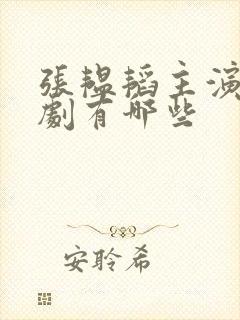 張韞韜主演
劇有哪些
安聆希